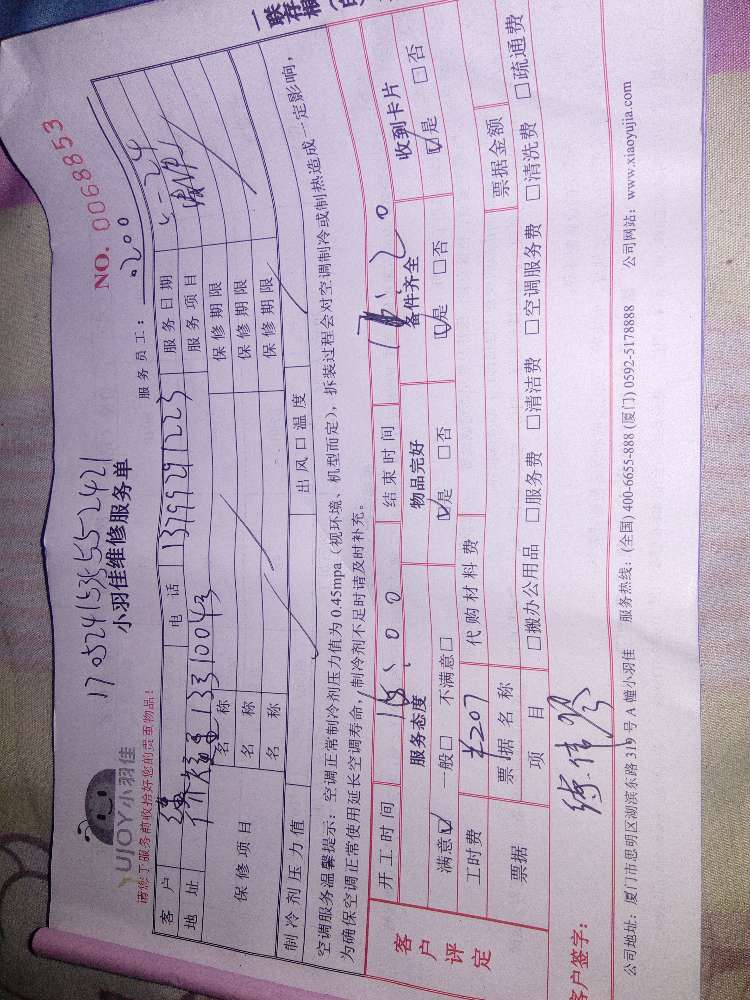 17052415355552421
NO. 0068853
YUJOY小羽佳
小羽佳维修服务单
服务员工：
200
请您于服务前收拾好您的贵重物品！
客户 电话 13799291223 服务日期
地址 服务项目
保修项目 名称 保修期限
名称 保修期限
名称 保修期限
制冷剂压力值 出风口温度
空调服务温馨提示：空调正常制冷剂压力值为0.45mpa（视环境、机型而定），拆装过程会对空调制冷或制热造成一定影响，
为确保空调正常使用延长空调寿命，制冷剂不足时请及时补充。
客户评定
开工时间 结束时间
服务态度 物品完好 备件齐全 收到卡片
满意☑ 一般□ 不满意□ ☑是 □否 ☑是 □否 ☑是 □否
工时费 ¥207 代购材料费
票据 票据名称 票据金额
项目 □搬办公用品 □服务费 □清洁费 □空调服务费 □清洗费 □疏通费
客户签字：
公司地址：厦门市思明区湖滨东路319号A幢小羽佳 服务热线：(全国) 400-6655-888 (厦门) 0592-5178888 公司网站：www.xiaoyujia.com